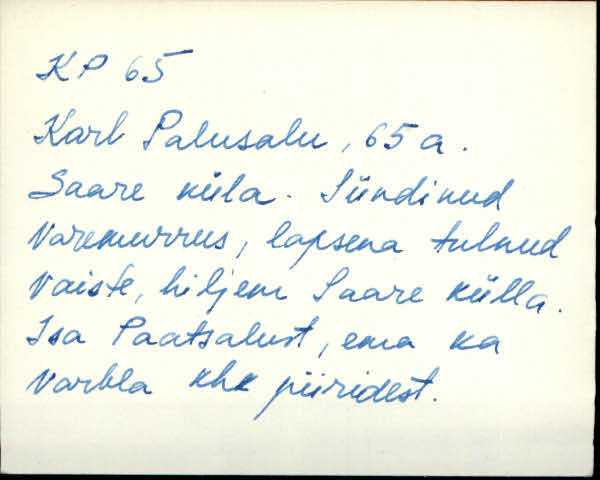 KP 65
Karl Palusalu, 65 a.
Saare küla. Sündinud
Varemurrus, lapsena tulnud
Vaiste, hiljem Saare külla.
Isa Paatsalust, ema ka
Varbla khk piiridest.